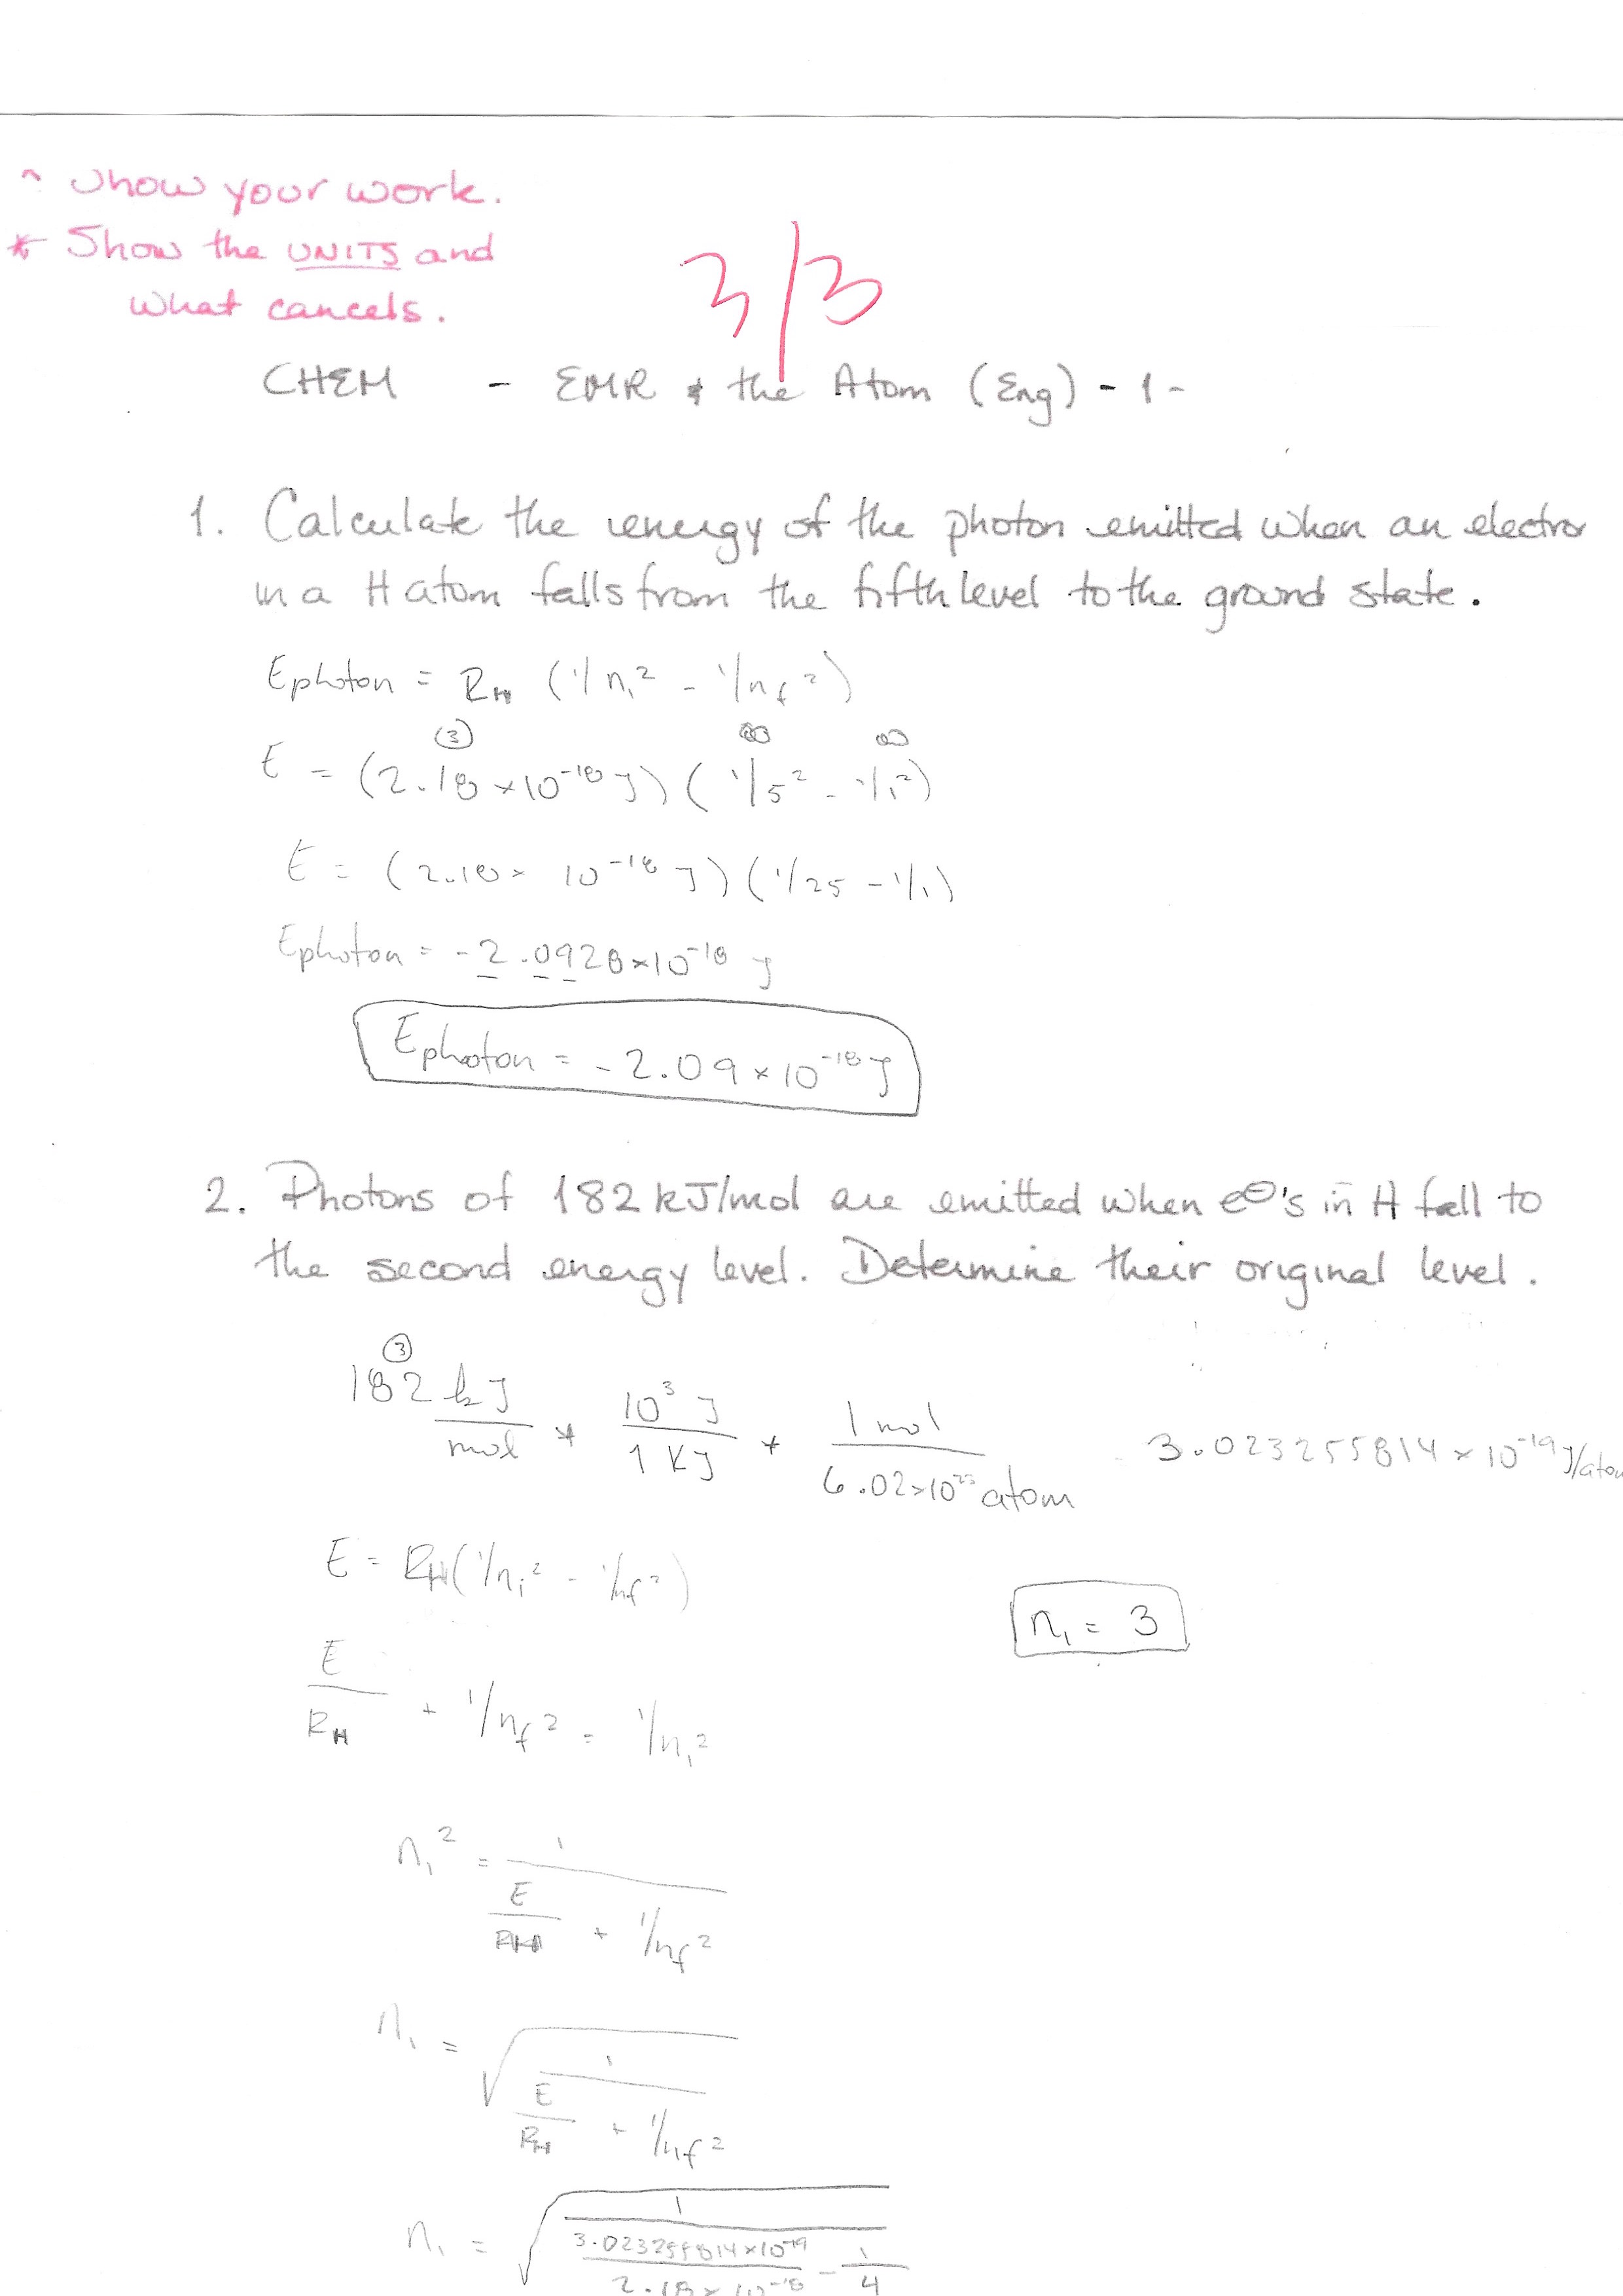 Show your work.
* Show the UNITS and
what cancels.
3/3
CHEM - EMR & the Atom (Eng) - 1 -
1. Calculate the energy of the photon emitted when an electron
in a H atom falls from the fifth level to the ground state.
Ephoton = RH (1/ni² - 1/nf²)
③ ∞ ∞
E = (2.18 × 10⁻¹⁸ J) (1/5² - 1/1²)
E = (2.18 × 10⁻¹⁸ J) (1/25 - 1/1)
Ephoton = -2.0928 × 10⁻¹⁸ J
Ephoton = -2.09 × 10⁻¹⁸ J
2. Photons of 182 kJ/mol are emitted when e⊖'s in H fall to
the second energy level. Determine their original level.
③
182 kJ/mol * 10³ J/1 KJ * 1 mol/6.02×10²³ atom 3.023255814 × 10⁻¹⁹ J/atom
E = RH (1/ni² - 1/nf²)
ni = 3
E/RH + 1/nf² = 1/ni²
ni² = 1/(E/RH + 1/nf²)
ni = √(1/(E/RH + 1/nf²))
ni = √(1/(3.023255814×10⁻¹⁹/2.18×10⁻¹⁸ - 1/4))